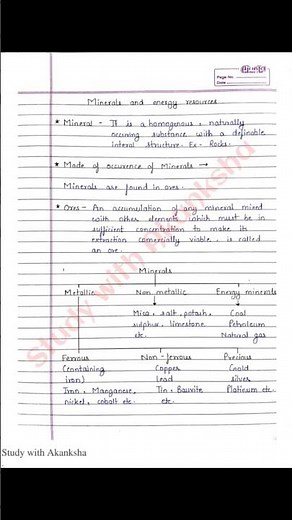 Page No.
Date
Minerals and energy resources
★ Mineral - It is a homogenous, naturally
occuring substance with a definable
interal structure. Ex - Rocks.
★ Mode of occurence of Minerals →
Minerals are found in ores.
★ Ores - An accumulation of any mineral mixed
with other elements which must be in
sufficient concentration to make its
extraction comercially viable. is called
an ore.
Minerals
Metallic Non metallic Energy minerals
Mica, salt, potash, Coal
sulphur, limestone Petroleum
etc. Natural gas
Ferrous Non-ferrous Precious
(containing Copper Gold
iron) Lead silver
Iron, Manganese, Tin, Bauxite Platinum etc.
nickel, cobalt etc. etc.
Study with Akanksha
Study with Akanksha